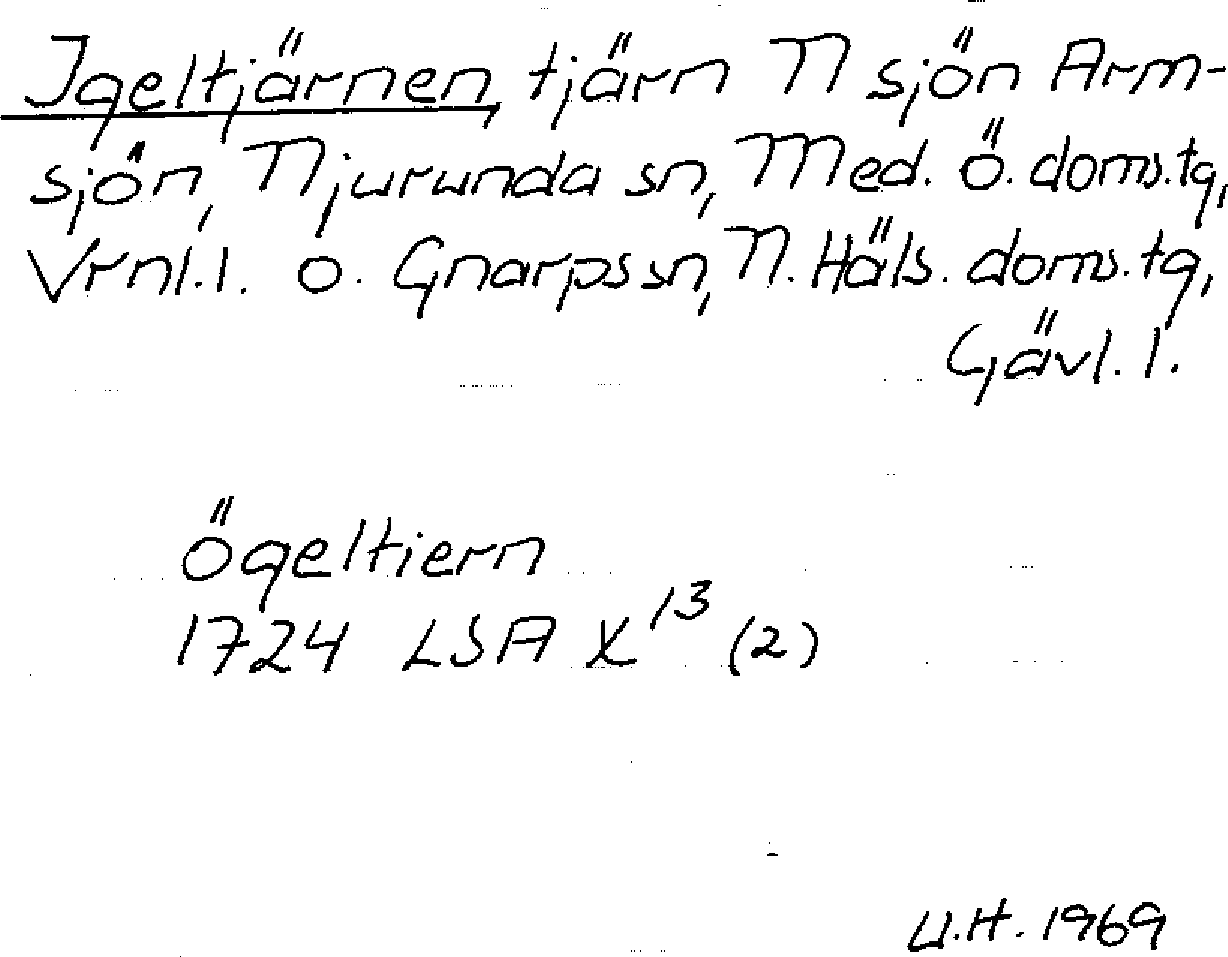 Igeltjärnen, tjärn N sjön Arm-
sjön, Njurunda sn, Med. ö. doms.tg,
Vrnl.l. o. Gnarps sn, N. Häls. doms.tg,
Gävl. l.
Ögeltiern
1724 LSA X 13 (2)
U.H. 1969